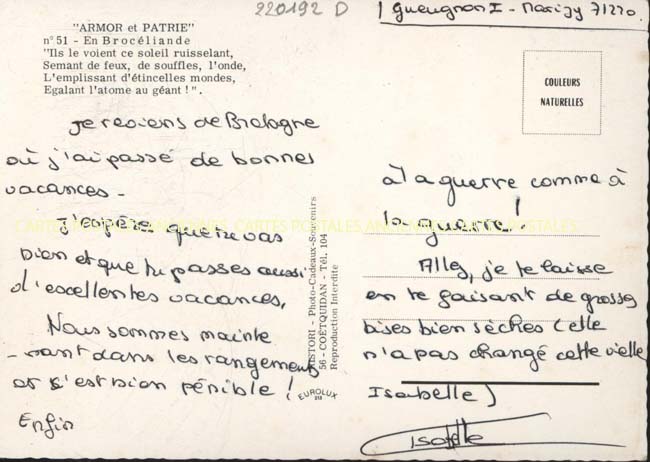 220192 D
Gueugnon I - Marizy 71220.
"ARMOR et PATRIE"
n° 51 - En Brocéliande
"Ils le voient ce soleil ruisselant,
Semant de feux, de souffles, l'onde,
L'emplissant d'étincelles mondes,
Egalant l'atome au géant !".
COULEURS
NATURELLES
Je reviens de Bretagne
où j'ai passé de bonnes
vacances -
J'espère que tu vas
bien et que tu passes aussi
d'excellentes vacances,
Nous sommes mainte
- nant dans les rangements
et c'est bien pénible !
Enfin
HISTORI - Photo-Cadeaux-Souvenirs
56 - COËTQUIDAN - Tél. 104
Reproduction Interdite
EUROLUX
à la guerre comme à
la guerre !
Allez, je te laisse
en te faisant de grosses
bises bien sèches (elle
n'a pas changé cette vieille
Isabelle)
Isabelle
CARTES POSTALES ANCIENNES CARTES POSTALES ANCIENNES CARTES POSTALES